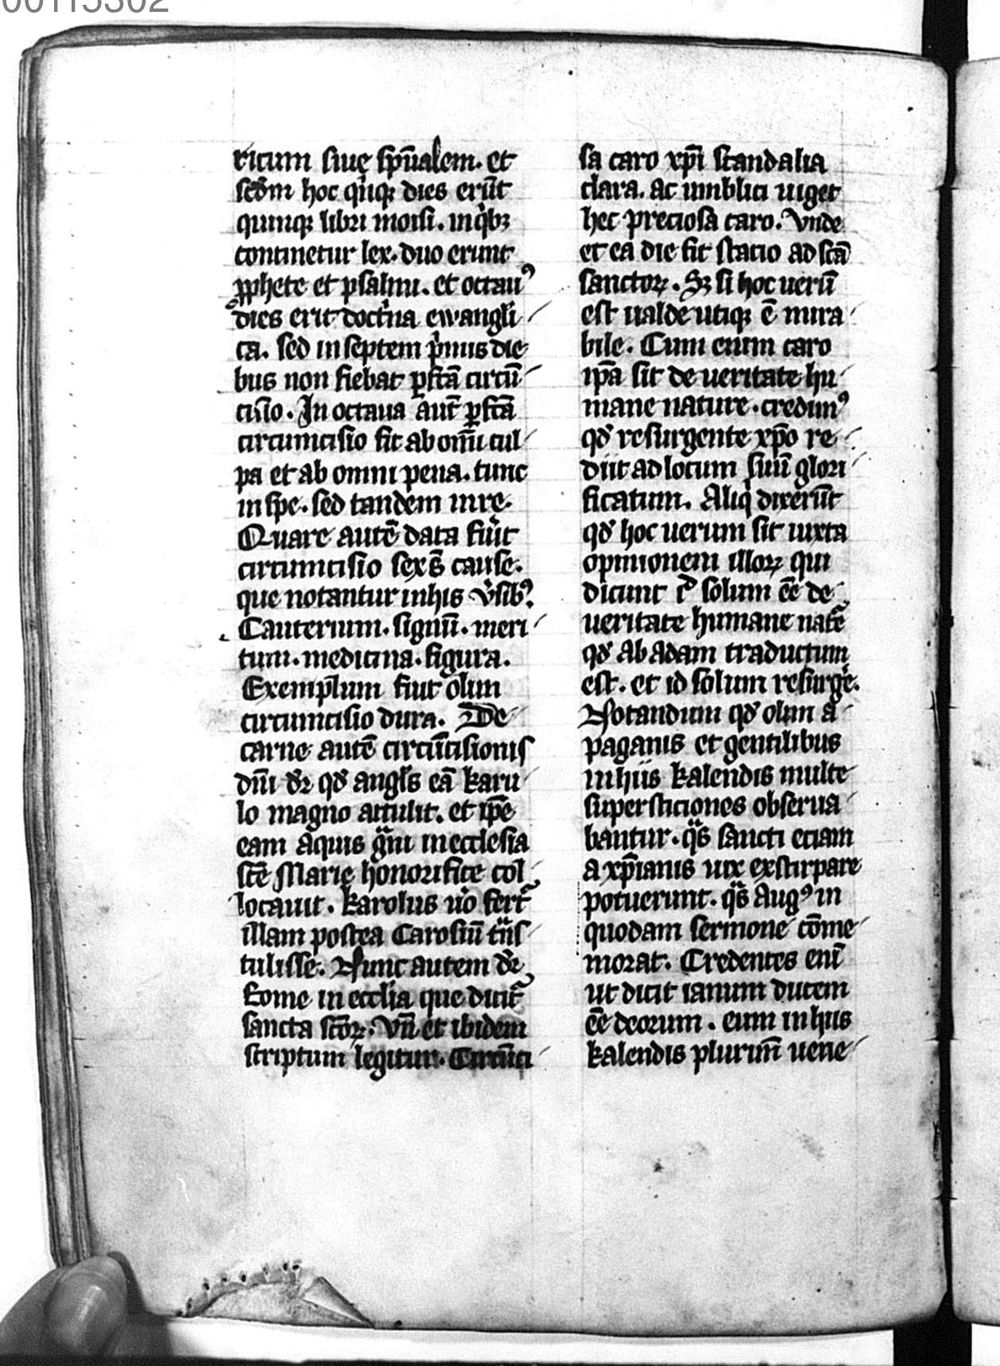 00115302
ricum siue sp̄ualem. et
scd̄m hoc qͥnqꝫ dies erūt
quinqꝫ libri moisi. in qͥbꝫ
continetur lex. duo erunt
ꝓphete et psalmi. et octauꝰ
dies erit doctͥna ewangli
ca. sed in septem pͥmis die
bus non fiebat ꝑfcā circū
cisio. In octaua aut̄ ꝑfcā
circumcisio fit ab om̄i cul
pa et ab omni pena. tunc
in spe. sed tandem in re.
Quare autē data fuͥt
circumcisio sex s̄ cause.
que notantur in his v̓sibꝰ.
Cauterium. signū. meri
tum. medicina. figura.
Exemplum fuit olim
circumcisio dura. De
carne autē circūcisionis
dn̄i dr̄ qd̓ angl̓s eā karu
lo magno attulit. et ip̄e
eam aquis gͣni in ecclesia
scē Marie honorifice col
locauit. Karolus u̓o fert̄
illam postea Carosiū tͣns
tulisse. Nunc autem dr̄
Rome in ecc̄lia que dicit̄
sancta scōꝝ. Vn̄ et ibidem
scriptum legitur. Circūci
sa caro xp̄i scandalia
clara. ac umblici uiget
hec preciosa caro. Vnde
et ea die fit stacio ad scā
sanctoꝝ. Sꝫ si hoc uerū
est ualde utiqꝫ ē mira
bile. Cum enim caro
ip̄a sit de ueritate hu
mane nature. credimꝰ
qd̓ resurgente xp̄o re
diit ad locum suū glori
ficatum. Aliqͥ dixerūt
qd̓ hoc uerum sit iuxta
opinionem illoꝝ qui
dicunt id̓ solum eē de
ueritate humane natē
qd̓ ab adam traductum
est. et id solum resurgē.
Notandum qd̓ olim a
paganis et gentilibus
in hiis kalendis multe
supersticiones obserua
bantur. qͣs sancti eciam
a xp̄ianis uix exstirpare
potuerunt. qͣs Augꝰ in
quodam sermone cōme
morat. Credentes enī
ut dicit ianum ducem
eē deorum. eum in hiis
kalendis plurimū uene